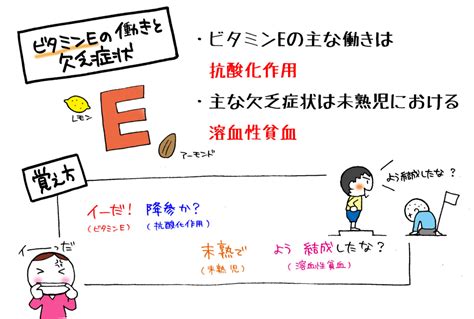 ビタミンEの働きと
欠乏症状
・ビタミンEの主な働きは
抗酸化作用
・主な欠乏症状は未熟児における
溶血性貧血
レモン
E
アーモンド
覚え方
よう結成したな？
?
イーだ！ 降参か？
(ビタミンE) (抗酸化作用)
未熟で よう 結成したな？
(未熟児) (溶血性貧血)
イーーっだ